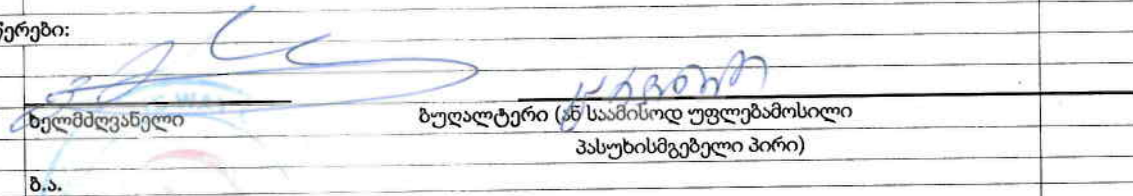 წერები:
ხელმძღვანელი
ბუღალტერი (ან საამისოდ უფლებამოსილი
პასუხისმგებელი პირი)
ბ.ა.